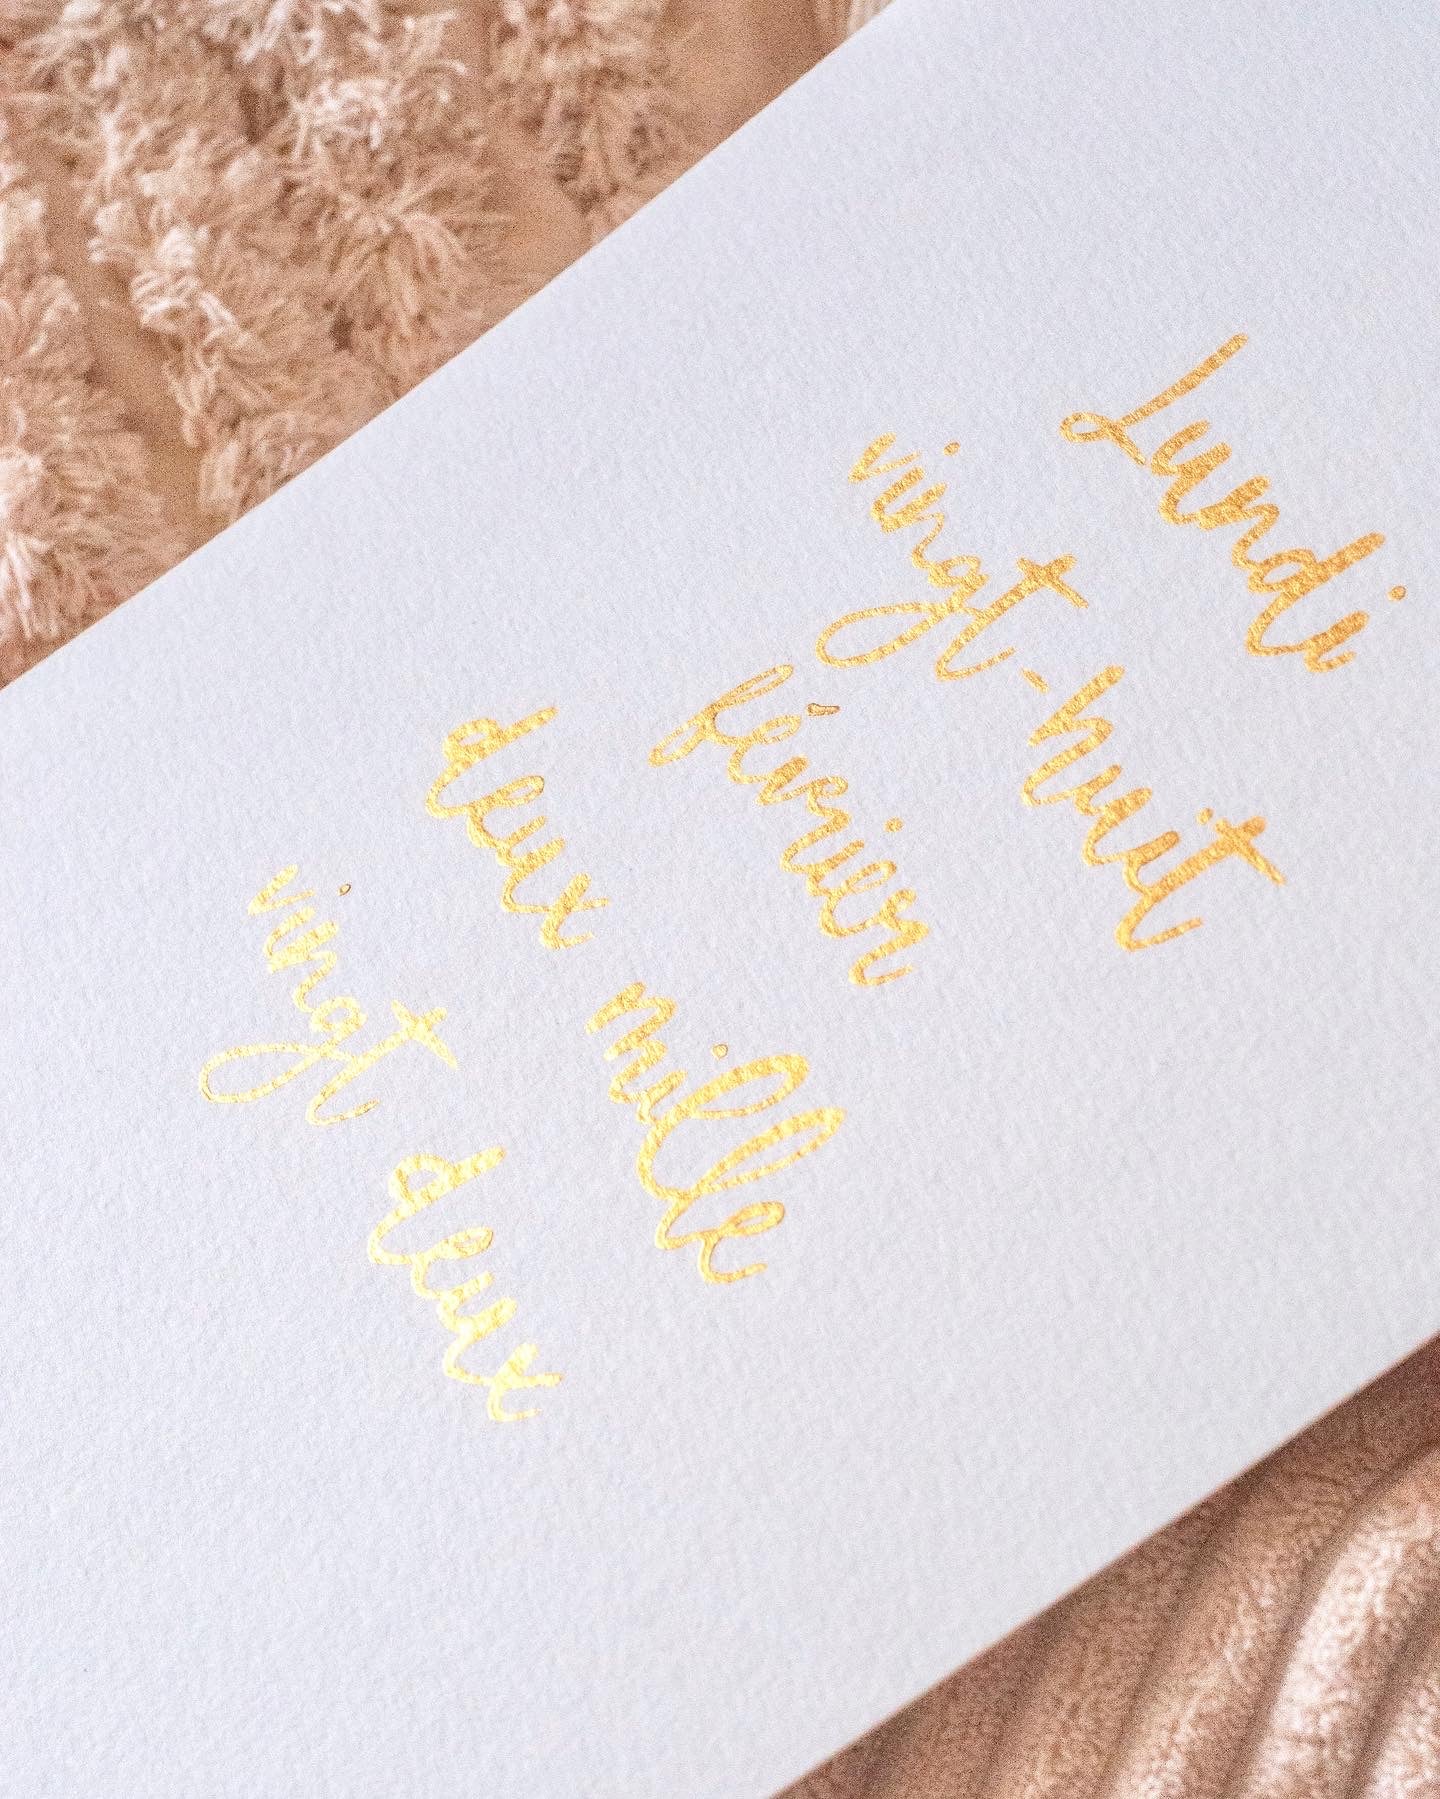 Lundi
vingt-huit
février
deux mille
vingt deux